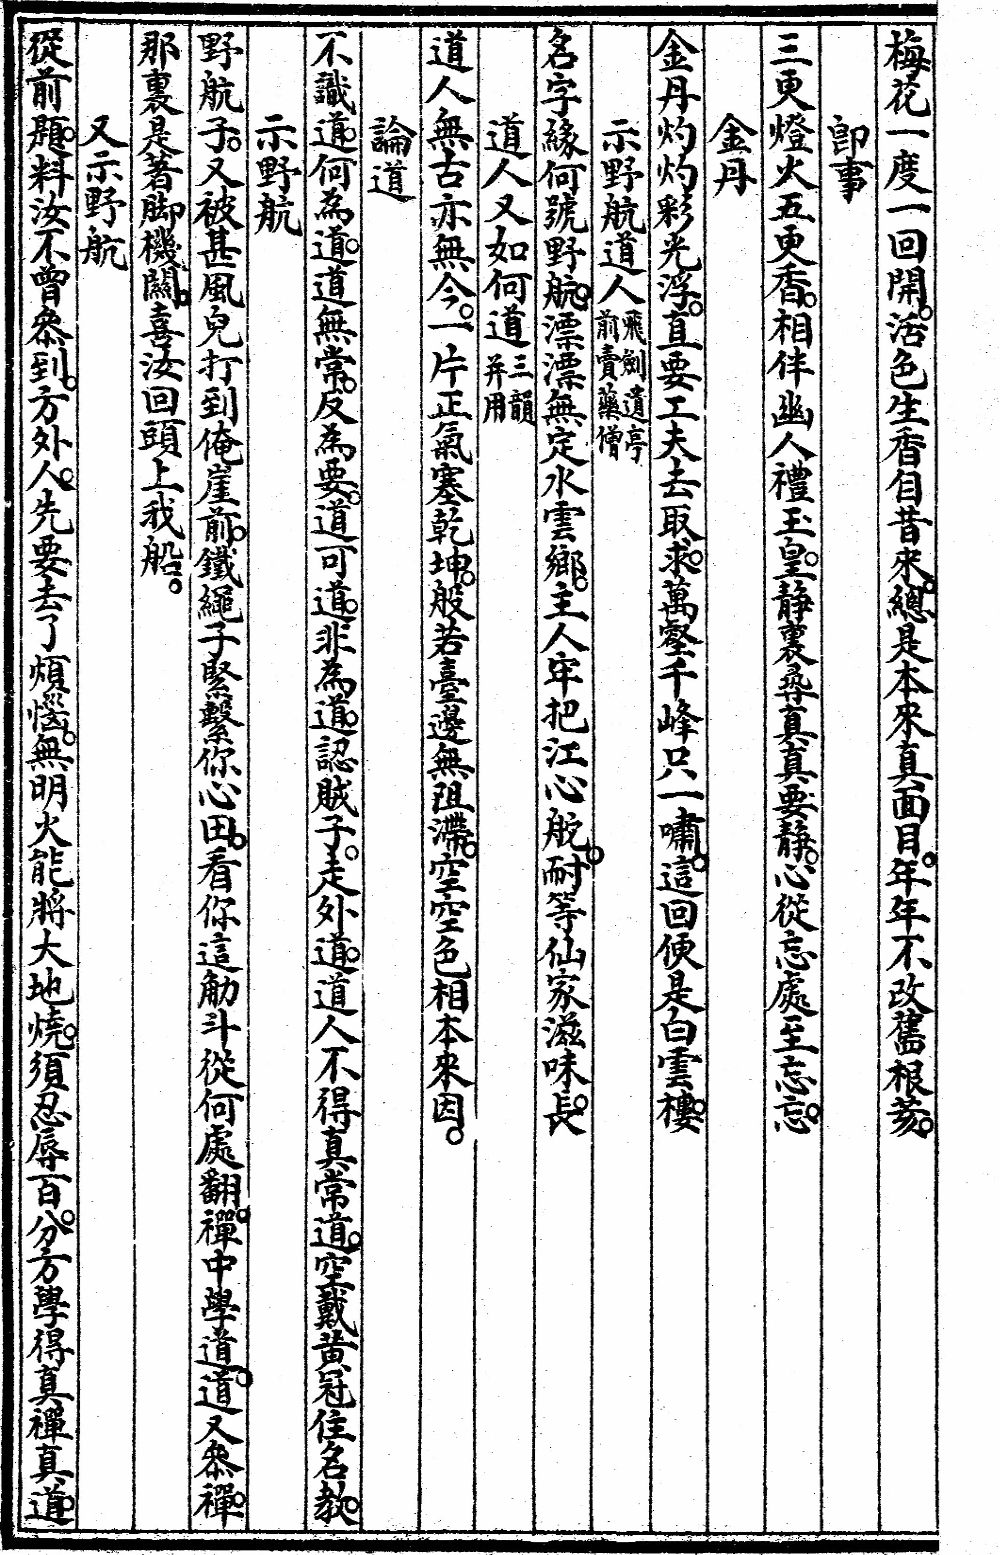 梅花一度一回開。活色生香自昔來。總是本來真面目。年年不改舊根荄。
即事
三更燈火五更香。相伴幽人禮玉皇。靜裏尋真真要靜。心從忘處至忘忘。
金丹
金丹灼灼彩光浮。直要工夫去取求。萬壑千峰只一嘯。這回便是白雲樓。
示野航道人飛劍遺亭前賣藥僧
名字緣何號野航。漂漂無定水雲鄉。主人牢把江心舵。耐等仙家滋味長。
道人又如何道三韻并用
道人無古亦無今。一片正氣塞乾坤。般若臺邊無阻滯。空空色相本來因。
論道
不識道。何為道。道無常。反為要。道可道。非為道。認賊子。走外道。道人不得真常道。空戴黃冠住名教。
示野航
野航子。又被甚風兒打到俺崖前。鐵繩子緊繫你心田。看你這觔斗從何處翻。禪中學道。道又叅禪。
那裏是著脚機關。喜汝回頭上我船。
又示野航
從前題。料汝不曾叅到。方外人。先要去了煩惱。無明火能將大地燒。須忍辱百分。方學得真禪真道。